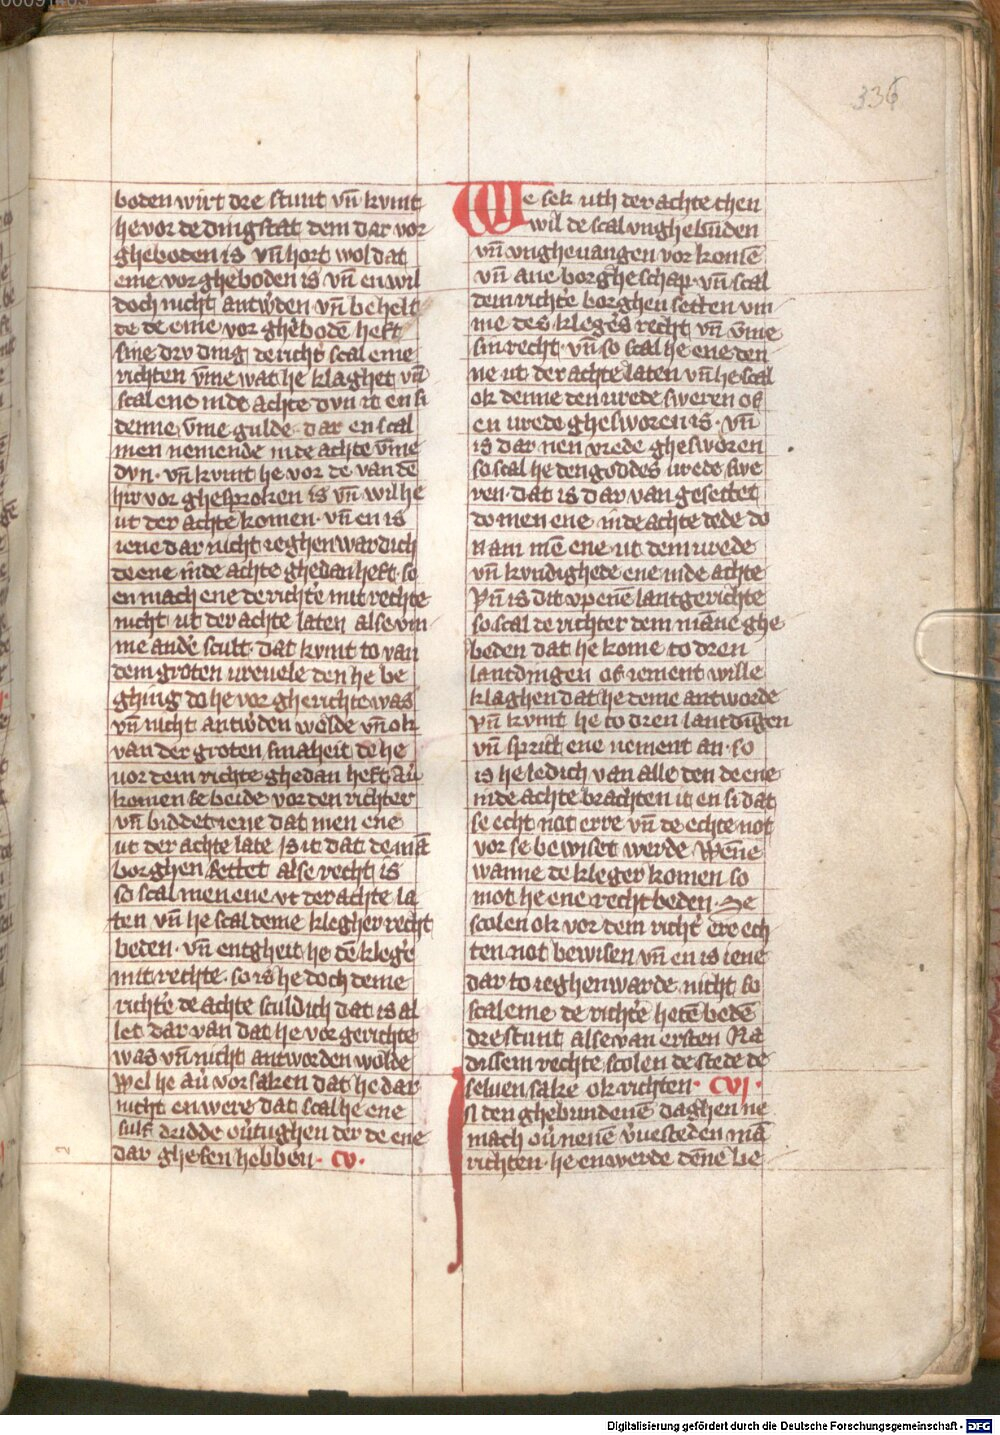 336
boden wirt dre stunt vn̄ kvmt
he vor de dingstat dem dar vor
gheboden is vn̄ hort wol dat
eme vor gheboden is vn̄ en wil
doch nicht antwͦden vn̄ be helt
de de eme vor ghebodē heft
sine dry ding de richtʼ scal eme
richten vm̄e wat he klaghet vn̄
scal ene in de achte dvn it en si
denne vm̄e gulde dar en scal
men nemende in de achte vm̄e
dvn · vn̄ kvmt he vor de van de
hir vor ghesproken is vn̄ wil he
ut der achte komen · vn̄ en is
iene dar nicht ieghenwardich
de ene in de achte ghedan heft · so
en mach ene de richtʼe mit rechte
nicht ut der achte laten alse vm
me andʼe scult · dat kvmt to van
dem groten vrevele den he be
ghing do he vor gherichte was
vn̄ nicht antwͦden wolde vn̄ ok
van der groten smaheit de he
vor dem richte ghedan heft Avʼ
komen se beide vor den richter
vn̄ biddet iene dat men ene
ut der achte late Is it dat de mā
borghen settet alse recht is
so scal men ene vt der achte la
ten vn̄ he scal deme klegher recht
beden · vn̄ entgheit he dē klegʼe
mit rechte · so is he doch deme
richtʼe de achte sculdich dat is al
let dar van dat he vor gerichte
was vn̄ nicht antworden wolde
Wel he avʼ vorsaken dat he dar
nicht en were dat scal he ene
sulf dridde ovʼtughen der de ene
dar ghesen hebben · CV ·
We sek uth der achte then
wil de scal vnghebūden
vn̄ vnghevangen vor komē
vn̄ ane borghe schap · vn̄ scal
dem richtʼe borghen setten vm
me des klegʼes recht vn̄ vm̄e
sin recht · vn̄ so scal he ene den
ne ut der achte laten vn̄ he scal
ok denne den vrede sweren of
en vrede ghesworen is · vn̄
is dar nen vrede ghesworen
so scal he den goddes vrede swe
ren · dat is dar van gesettet
do men ene in de achte dede do
nam mē ene ut dem vrede
vn̄ kvndighede ene in de achte
Vn̄ is dit vpenē lantgerichte
so scal de richter dem māne ghe
beden dat he kome to dren
lantdingen of iement wille
klaghen dat he deme antworde
vn̄ kvmt he to dren lantdingen
vn̄ sprikt ene nement an · so
is he ledich van alle den de ene
in de achte brachten it en si dat
se echt not erre vn̄ de echte not
vor se bewiset werde Wēne
wanne de kleger komen so
mot he ene recht beden · Se
scolen ok vor dem richtʼ ere ech
ten not bewisen vn̄ en is iene
dar to ieghenwarde nicht so
scal eme de richtʼe hetē bedē
dre stunt alse van ersten Na
dissem rechte scolen de stede de
selven sake ok richten · CVI ·
In den ghebundenē daghen ne
mach ovʼ nenē vʼvesteden mā
richten · he en werde dēne be
Digitalisierung gefördert durch die Deutsche Forschungsgemeinschaft - DFG